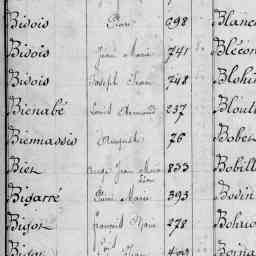 Bisois Pierre 698 Blanc
Bisois Jean Marie 741 Blécon
Bisois Joseph Jean 748 Blohi
Bienabé Louis Armand 237 Blout
Biemassis Auguste 76 Bober
Bier Jean Marie 833 Bobill
Bigarré Pierre Marie 393 Bodin
Bigot François Marie 278
Bigot Jean